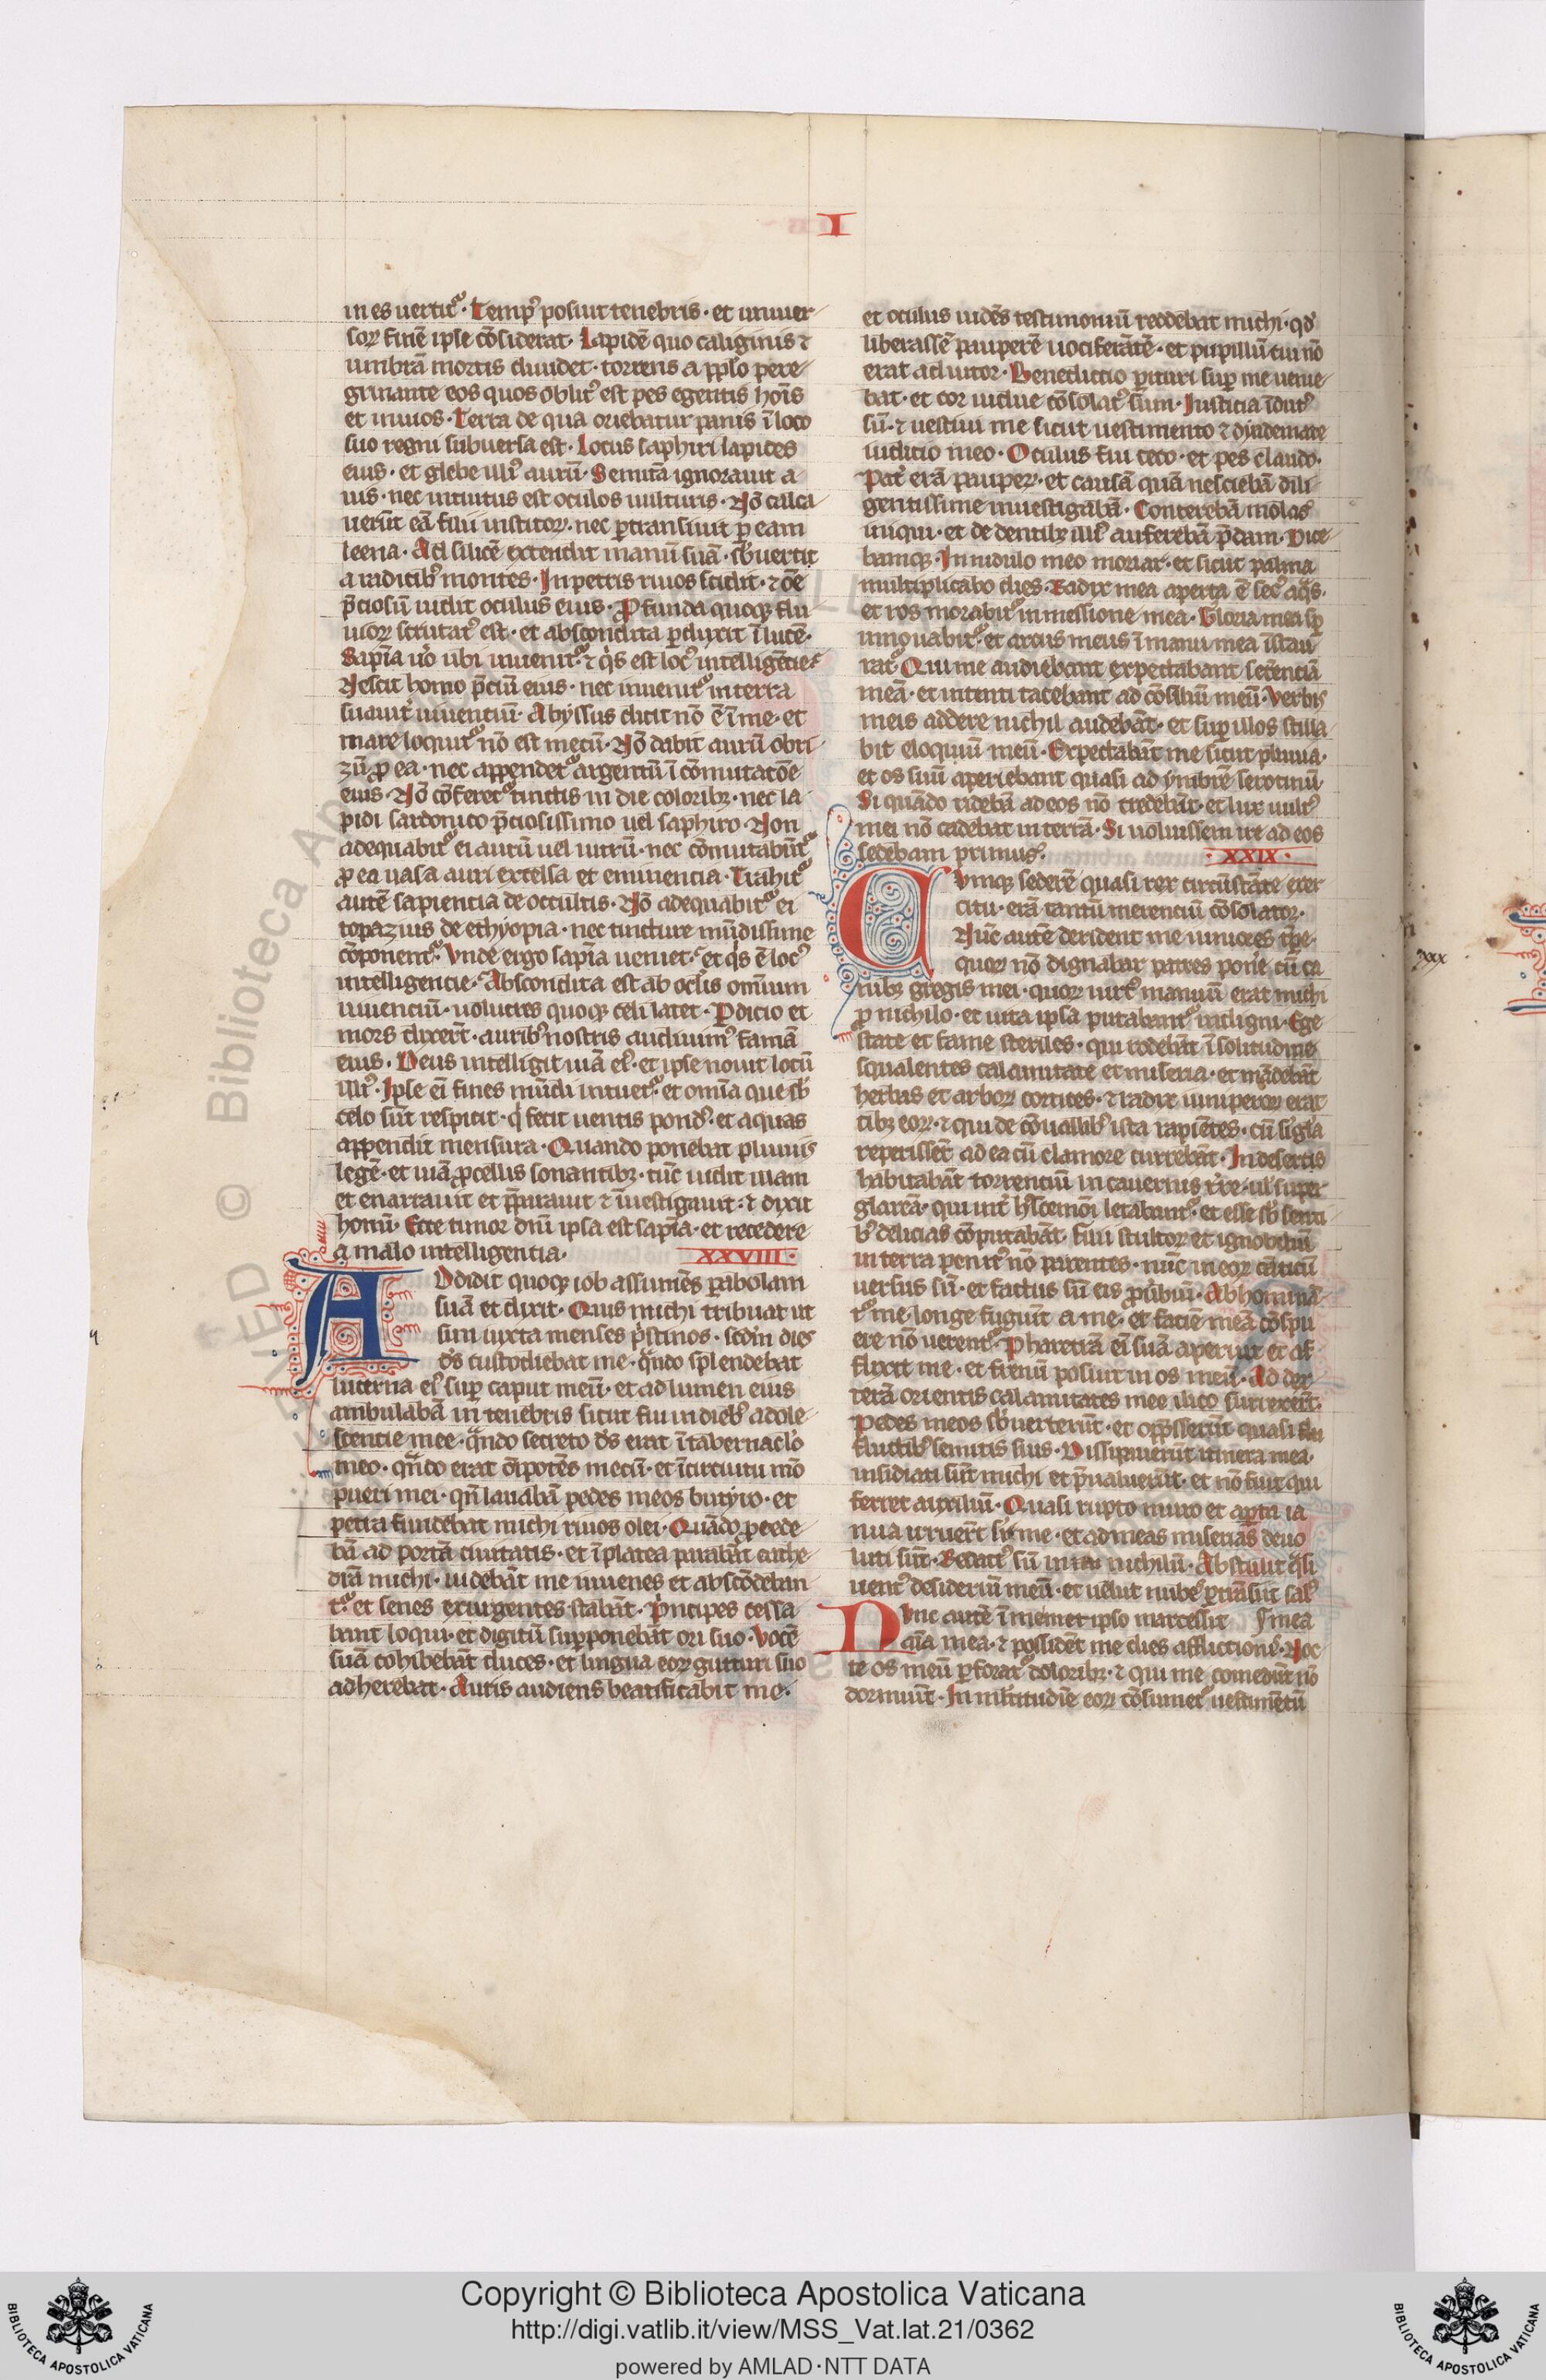 I
in es uertit᷑. Temp⁹ posuit tenebris. et uniuer
soꝝ finē ipse cōsiderat. Lapidē quoq caliginis ⁊
umbrā mortis diuidet. torrens a pplo pere
grinante eos quos oblit⁹ est pes egentis hoīs
et inuios. Terra de qua oriebatur panis ī loco
suo regni subuersa est. Locus saphiri lapides
eius. et glebe illi⁹ aurū. Semitā ignorauit a
uis. nec intuitus est oculos uulturis. Nō calca
uerūt eā filii institoꝝ. nec ꝑtransiuit ꝑ eam
leena. Ad silicē extendit manū suā. sb̄uertit
a radicib⁹ montes. In petris riuos scidit. ⁊ oē
p̄ciosū uidit oculus eius. Ꝓfunda quoqꝫ flu
uioꝝ scrutat⁹ est. et abscondita ꝓduxit ī lucē.
Sapīa u̾o ubi inuenit᷑. ⁊ q̾s est loc⁹ intelligētie
Nescit homo p̄ciū eius. nec inuenit᷑ in terra
suauit̾ uiuentiū. Abyssus dicit nō ē ī me. et
mare loquit᷑ nō est mecū. Nō dabit aurū obri
zū ꝓ ea. nec appendet᷑ argentū ī cōmutatōe
eius. Nō cōferet᷑ tinctis indie coloribꝫ. nec la
pidi sardonico p̄ciosissimo uel saphiro. Non
adequabit᷑ ei aurū uel uitrū. nec cōmutabūt᷑
ꝓ ea uasa auri excelsa et eminencia. Trahit᷑
autē sapientia de occultis. Nō adequabit᷑ ei
topazius de ethyopia. nec tincture mūdissime
cōponent᷑. Vnde ergo sapīa ueniet. et q̾s ē loc⁹
intelligentie. Abscondita est ab oclis omnium
uiuentiū. uolucres quoqꝫ celi latet. Ꝑdicio et
mors dixerūt. aurib⁹ nostris audiuim⁹ famā
eius. Deus intelligit uiā ei⁹. et ipse nouit locū
illi⁹. Ipse eī fines mūdi intuet᷑. et omīa que sb̄
celo sūt respicit. q̾ fecit uentis pond⁹. et aquas
appendit mensura. Quando ponebat pluuiis
legē. et uiā ꝓcellis sonantibꝫ. tūc uidit illam
et enarrauit et p̄parauit ⁊ īuestigauit. ⁊ dixit
homī. Ecce timor dnī ipsa est sapīa. et recedere
a malo intelligentia. XXVIII.
ADdidit quoqꝫ iob assumēs ꝑabolam
suā et dixit. Quis michi tribuat ut
sim iuxta menses p̾stinos. scdm dies
q̾s ds̄ custodiebat me. q̄ndo splendebat
lucerna ei⁹ sup̱ caput meū. et ad lumen eius
ambulabā in tenebris sicut fui in dieb⁹ adole
scentie mee. q̄ndo secreto ds̄ erat ī tabernacl̄o
meo. qn̄do erat oīpotēs mecū. et ī circuitu mō
pueri mei. qn̄ lauabā pedes meos butyro. et
petra fundebat michi riuos olei. Quādo ꝓcede
bā ad portā ciuitatis. et ī platea parabāt cathe
drā michi. uidebāt me iuuenes et abscōdeban
t᷑. et senes exurgentes stabāt. P̾ncipes cessa
bant loqui. et digitū sup̱ponebāt ori suo. Vocē
suā cohibebāt duces. et lingua eoꝝ gutturi suo
adherebat. Auris audiens beatificabit me.
et oculus uidēs testimoniū reddebat michi. qd̾
liberassē pauperē uociferātē. et pupillū cui nō
erat adiutor. Benedictio ꝑituri sup̱ me uenie
bat. et cor uidue cōsolat⁹ sum. Iusticia īdut⁹
sū. ⁊ uestiui me sicut uestimento ⁊ dyademate
iudicio meo. Oculus fui ceco. et pes claudo.
Pat̾ erā pauperꝝ. et causā quā nesciebā dili
gentissime inuestigabā. Conterebā molas
iniqui. et de dentibꝫ illi⁹ auferebā p̄dam. Dice
bamqꝫ. In nidulo meo moriar. et sicut palma
multiplicabo dies. Radix mea aperta ē sec⁹ aq̄s.
et ros morabit᷑ in messione mea. Gloria mea sp̱
innouabit᷑. et arcus meus ī manu mea īstau
rat᷑. Qui me audiebant expectabant sētenciā
meā. et intenti tacebant ad cōsiliū meū. Verbis
meis addere nichil audebāt. et sup̱ illos stilla
bit eloquiū meū. Expectabāt me sicut pluuiā.
et os suū aperiebant quasi ad ymbrē serotinū
Si quādo ridebā ad eos nō credebāt. et lux uult⁹
mei nō cadebat in terrā. Si uoluissem ire ad eos
sedebam primus. XXIX.
CVmqꝫ sederē quasi rex circūstāte exer
citu. erā tamē merenciū cōsolator.
Nūc autē derident me iuniores tp̱e.
quoꝝ nō dignabar patres ponē cū ca
nibꝫ gregis mei. quoꝝ uirt⁹ manuū erat michi
ꝓ nichilo. et uita ipsa putabant᷑ indigni. Ege
state et fame steriles. qui rodebāt ī solitudine
squalentes calamitate et miseria. et mādebāt
herbas et arboꝝ cortices. ⁊ radix iuniperoꝝ erat
cibꝫ eoꝝ. ⁊ qui de cōuallib⁹ ista rapiētes. cū sigla
reperissēt ad ea cū clamore currebāt. In desertis
habitabāt torrenciū in cauernis t̾re. ul̾ super
glareā. qui int̾ h⁹scemōi letabant᷑. et esse sb̄ senti
b⁹ delicias cōputabāt. filii stultoꝝ et ignobiliū
in terra penit⁹ nō parentes. nūc in eoꝝ cāticū
uersus sū. et factus sū eis ꝓuerbiū. Abhominā
t᷑ me. longe fugiūt a me. et faciē meā cōspu
ere nō uerent᷑. Pharetrā eī suā aperuit et af
flixit me. et frenū posuit in os meū. Ad dex
terā orientis calamitates mee ilico surrexerūt.
Pedes meos sb̄uerterūt. et opp̄sserūt quasi
fluctib⁹ semitis suis. Dissipauerūt itinera mea.
insidiati sūt michi et p̄ualuerūt. et nō fuit qui
ferret auxiliū. Quasi rupto muro et aꝑta ia
nua irruerūt sr̄ me. et ad meas miserias deuo
luti sūt. Redact⁹ sū in nichilū. Abstulit q̄si
uent⁹ desideriū meū. et uelut nubes ꝑtrāsiit sal⁹
NVnc autē ī memet ipso marcessit mea
aīa mea. ⁊ possidēt me dies afflictionis. Noc
te os meū ꝑforat᷑ doloribꝫ. ⁊ qui me comedūt nō
dormiūt. In ml̄titudīe eoꝝ cōsumet᷑ uestimētū
xxx
Copyright © Biblioteca Apostolica Vaticana
http://digi.vatlib.it/view/MSS_Vat.lat.21/0362
powered by AMLAD·NTT DATA
BIBLIOTECA APOSTOLICA VATICANA
BIBLIOTECA APOSTOLICA VATICANA